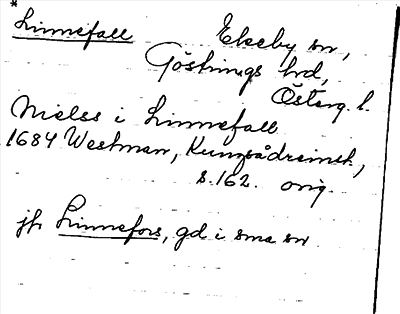 * Linnefall Ekeby sn,
Göstrings hrd,
Österg. l.
Nielss i Linnefall
1684 Westman, Kungsådreinsk,
s. 162. orig.
jfr Linnefors, gd i sma sn